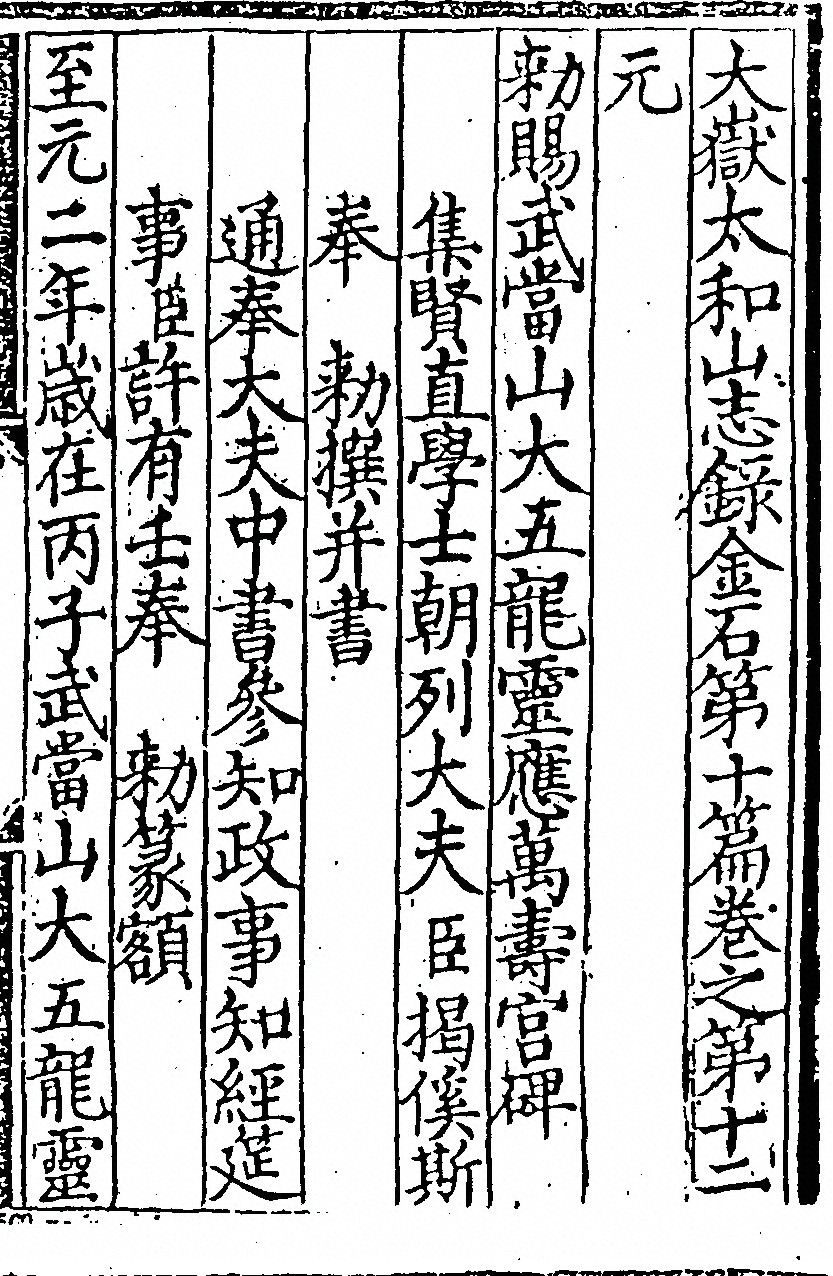 大嶽太和山志錄金石第十篇卷之第十二
元
勑賜武當山大五龍靈應萬壽宮碑
集賢直學士朝列大夫臣揭傒斯
奉 勑撰并書
通奉大夫中書參知政事知經筵
事臣許有壬奉 勑篆額
至元二年歲在丙子武當山大五龍靈